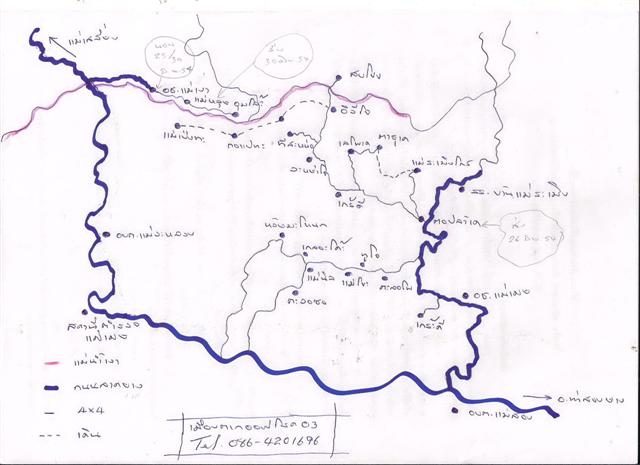 แม่เสลี่ยง
นอน
25/30
ธ.ค.54
รับ
30 ธ.ค. 54
สบโขง
อช.แม่เงา
แม่หลุย
อุมโล๊ะ
แม่เปิงทะ
กอแปทะ
ทีสะหม่อ
เลโพเด
ทาซูเด
แม่ระเมิงโกร
รร.บ้านแม่ระเมิง
เกร๊คี
ทอปลาเด
ส่ง
26 ธ.ค. 54
อบต.แม่วะหลวง
ทูโจ
แม่นิล
แม่โขะ
อช.แม่เมย
เกร๊ะคี
สถานีตำรวจ
แม่เมย
แม่น้ำเงา
ถนนลาดยาง
4x4
เดิน
เมืองตากออฟโรด 03
Tel. 086-4201696
อ.ท่าสองยาง
อบต.แม่สอง